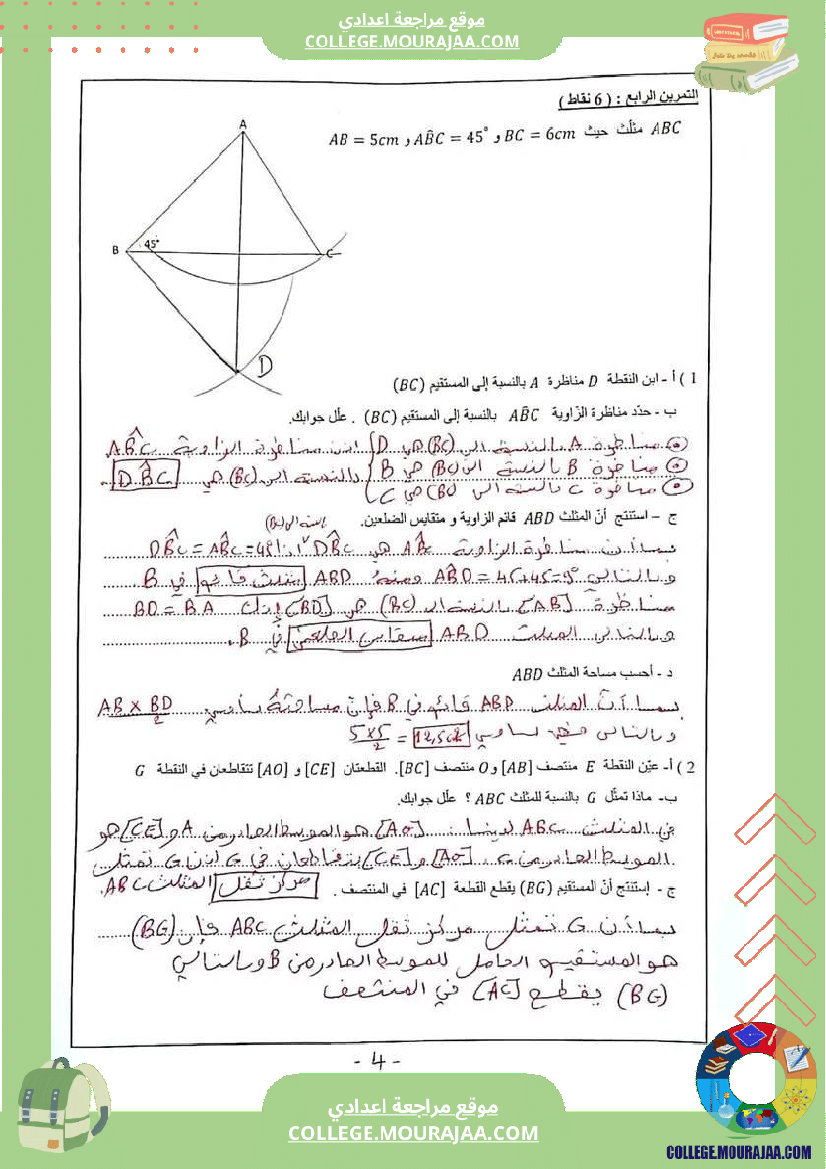 موقع مراجعة اعدادي
COLLEGE.MOURAJAA.COM
التمرين الرابع : ( 6 نقاط )
ABC مثلّث حيث BC = 6cm و AB̂C = 45° و AB = 5cm
A
B
45°
C
D
1 ) أ - ابن النقطة D مناظرة A بالنسبة إلى المستقيم (BC)
ب - حدّد مناظرة الزّاوية AB̂C بالنسبة إلى المستقيم (BC) . علّل جوابك.
مناظرة A بالنسبة الى (BC) هي D
مناظرة B بالنسبة الى (BC) هي B
مناظرة C بالنسبة الى (BC) هي C
اذن مناظرة الزاوية AB̂C
بالنسبة الى (BC) هي DB̂C
ج - استنتج أنّ المثلث ABD قائم الزاوية و متقايس الضلعين.
بالنسبة الى (BC)
بما أن مناظرة الزاوية AB̂C هي DB̂C اذا DB̂C = AB̂C = 45°
وبالتالي AB̂D = 45+45=90° ومنه ABD مثلث قائم في B
مناظرة [AB] بالنسبة الى (BC) هي [BD] إذن BD = BA
وبالتالي المثلث ABD متقايس الضلعين في B.
د - أحسب مساحة المثلث ABD
بما أنّ المثلث ABD قائم في B فإنّ مساحتهُ تساوي AB X BD / 2
وبالتالي تساوي 12,5cm² = 5x5 / 2
2 ) أ- عيّن النقطة E منتصف [AB] و O منتصف [BC]. القطعتان [CE] و [AO] تتقاطعان في النقطة G
ب- ماذا تمثّل G بالنسبة للمثلث ABC ؟ علّل جوابك.
في المثلث ABC لدينا : [AO] هو الموسط الصادر من A و [CE] هو
الموسط الصادر من C . [AO] و [CE] يتقاطعان في G اذن G تمثل
مركز ثقل المثلث ABC.
ج - إستنتج أنّ المستقيم (BG) يقطع القطعة [AC] في المنتصف .
بما أن G تمثل مركز ثقل المثلث ABC فإن (BG)
هو المستقيم الحامل للموسط الصادر من B وبالتالي
(BG) يقطع [AC] في المنتصف
- 4 -
موقع مراجعة اعدادي
COLLEGE.MOURAJAA.COM
COLLEGE.MOURAJAA.COM